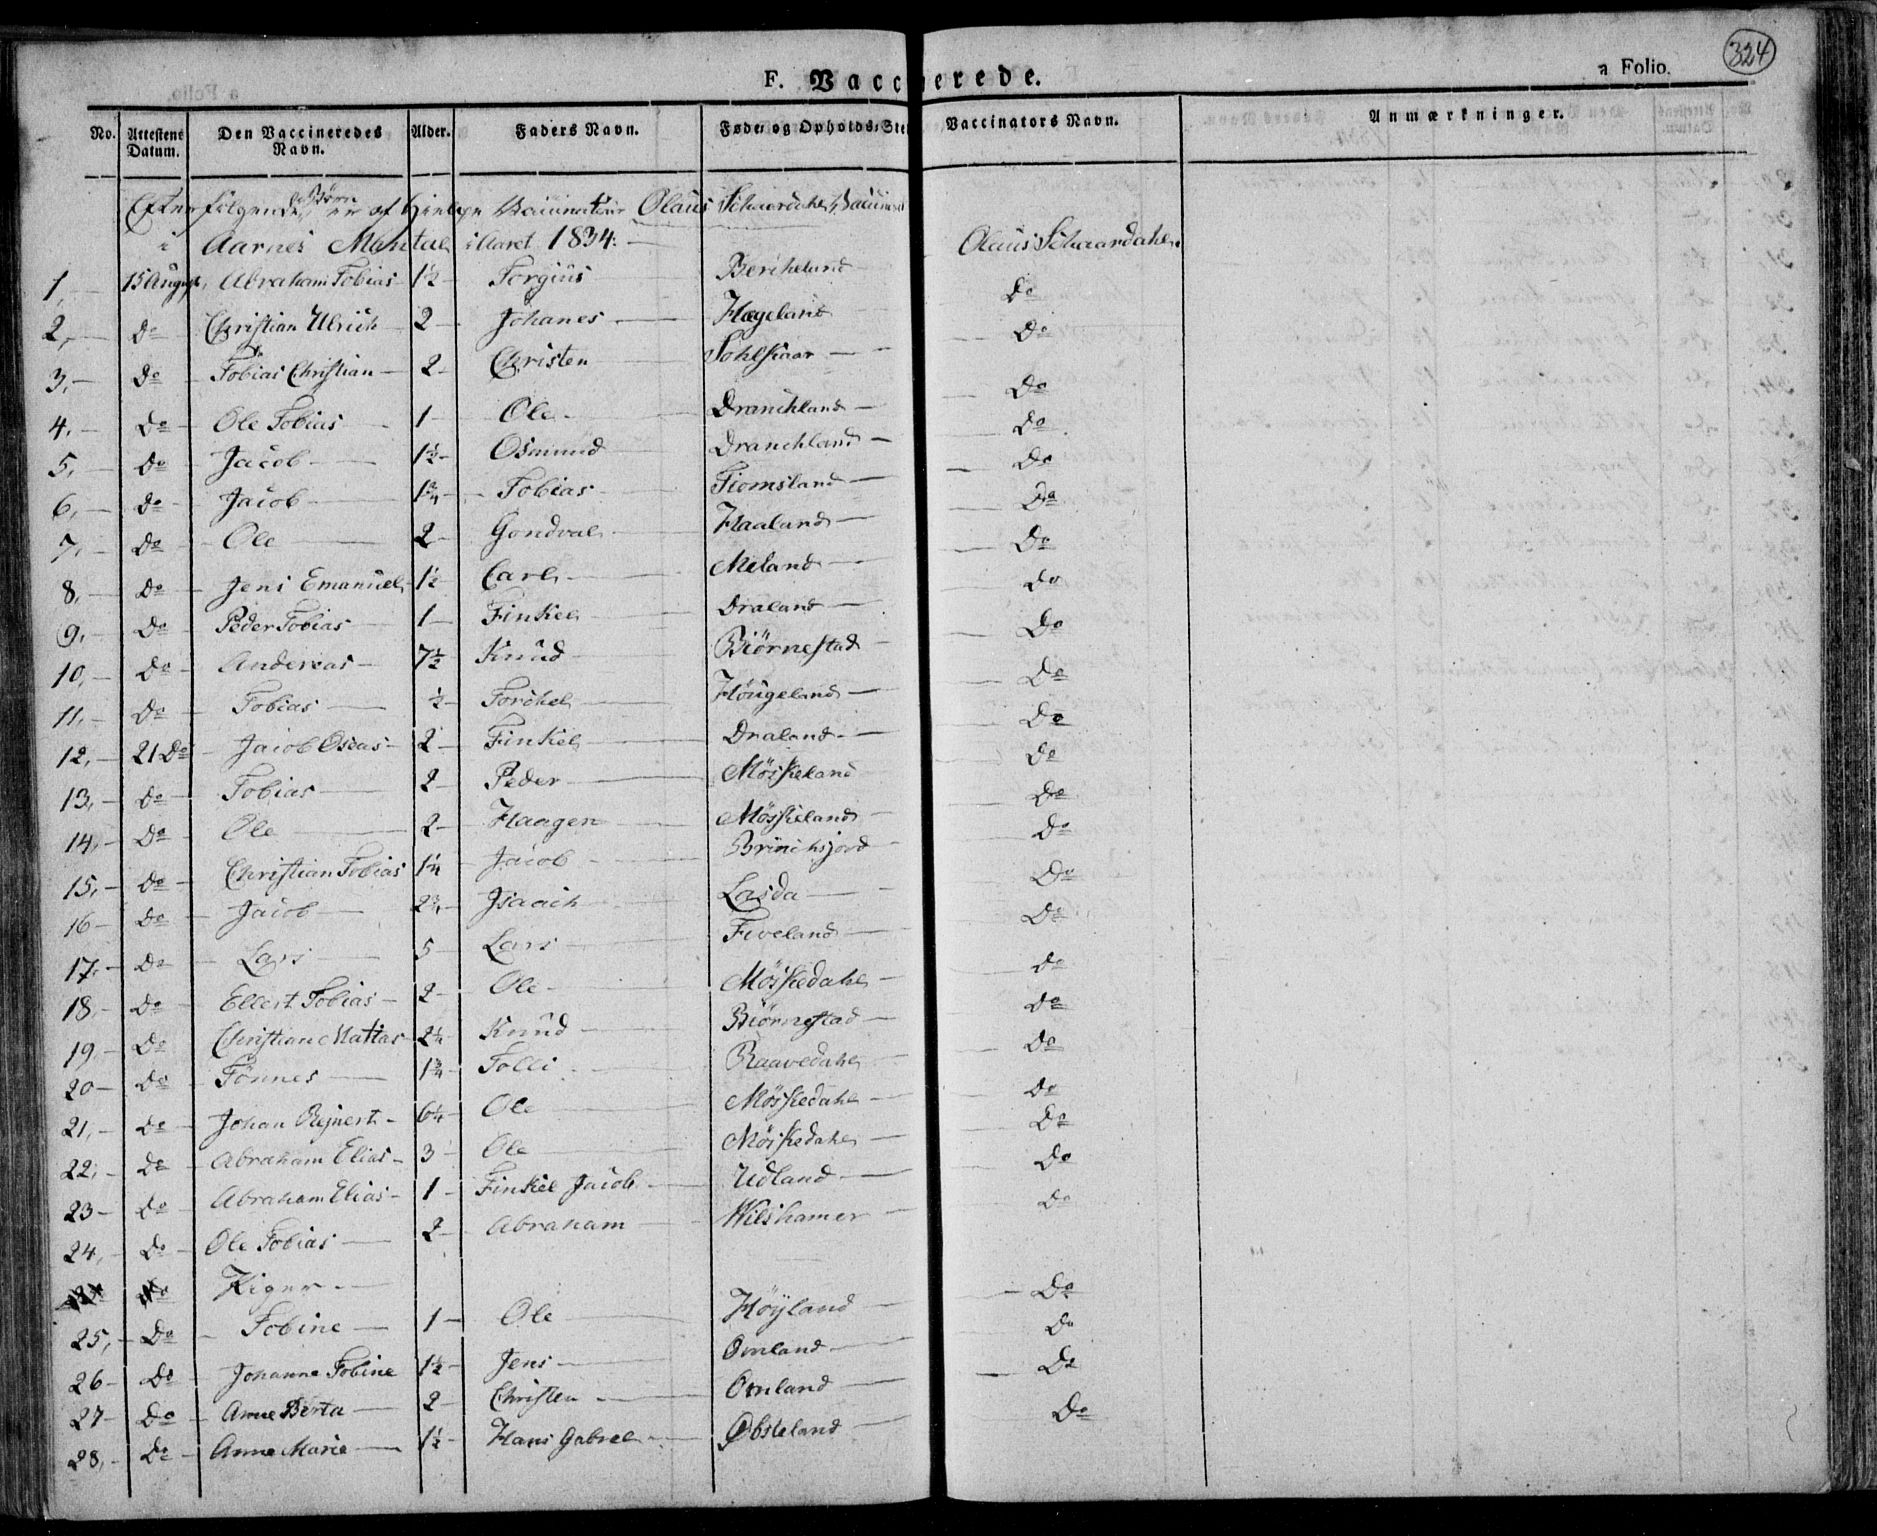 324
F. Vaccinerede.
a Folio.
No. Attestens Datum. Den Vaccineredes Navn. Alder. Faders Navn. Føde- og Opholds-Sted Vaccinators Navn. Anmærkninger.
Efterfølgende Børn er af Olaus Schaardahl
i Aarnes i Aaret 1834.
1, 15 August, Abraham Tobias 1½ Torgius Berikeland Olaus Schaardahl
2, Do Christian Ulrich 2 Johanes Hægeland Do
3, Do Tobias Christian 2 Christen Sohlskaar Do
4, Do Ole Tobias 1 Ole Dranikland Do
5, Do Jacob 1½ Osmund Dranikland Do
6, Do Jacob 1¾ Tobias Fiomsland Do
7, Do Ole 2 Gondval Haaland Do
8, Do Jens Emanuel 1½ Carl Meland Do
9, Do Peder Tobias 1 Finkel Draland Do
10, Do Andereas 7½ Knud Biörnestad Do
11, Do Tobias ½ Torchel Höugeland Do
12, 21 Do Jacob Oseas 2 Finkel Draland Do
13, Do Tobias 2 Peder Möskeland Do
14, Do Ole 2 Haagen Möskeland Do
15, Do Christian Tobias 1¼ Jacob Do
16 Do Jacob 2¾ Isaach Lasda Do
17, Do Lars 5 Lars Fiveland Do
18, Do Ellert Tobias 2 Ole Möskedahl Do
19 Do Christian Mattias 2¼ Knud Biörnestad Do
20 Do Tönnes 1¾ Tolli Raavedahl Do
21, Do Johan Rejnert 6¼ Ole Möskedahl Do
22, Do Abraham Elias 3 Ole Möskedahl Do
23 Do Abraham Elias 1 Finkel Jacob Udland Do
24, Do Ole Tobias 2 Abraham Wilshamer Do
Do Piger
25, Do Tobine 1 Ole Höyland Do
26 Do Johanne Tobine 1½ Jens Omland Do
27 Do Anne Berta 2 Christen Omland Do
28, Do Anne Marie 1½ Hans Gabrel Øbsteland Do